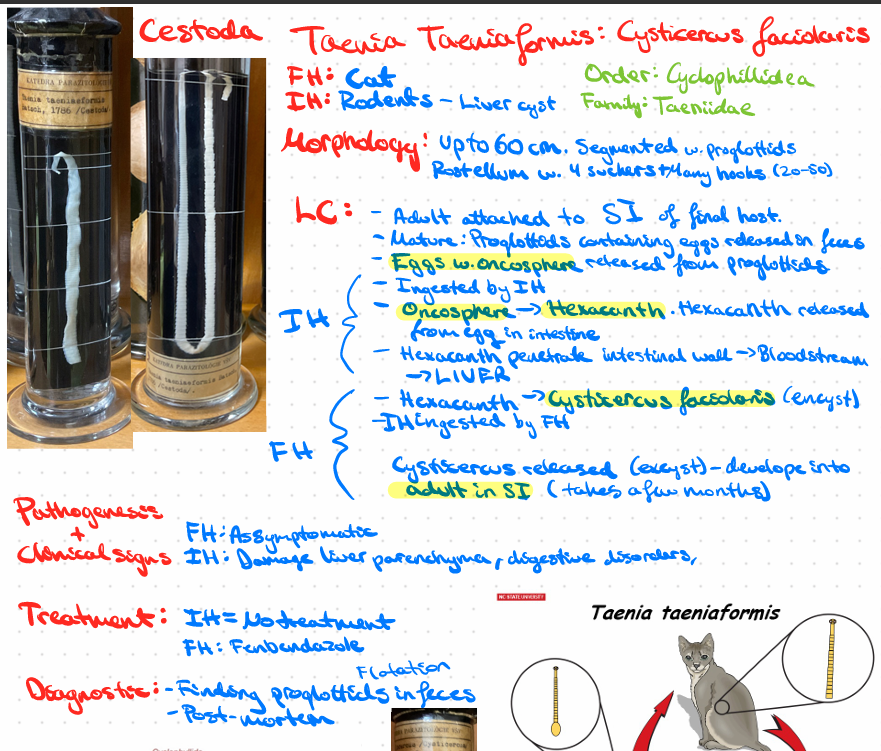 Cestoda
Taenia Taeniaformis: Cysticercus faciolaris
FH: Cat
Order: Cyclophillidea
IH: Rodents - Liver cyst
Family: Taeniidae
Morphology: up to 60 cm. Segmented w. proglottids
Rostellum w. 4 suckers + Many hooks (20-50)
LC: - Adult attached to SI of final host.
- Mature: Proglottids containing eggs released in feces
- Eggs w. oncosphere released from proglottids
- Ingested by IH
IH
- Oncosphere → Hexacanth. Hexacanth released
from egg in intestine
- Hexacanth penetrate intestinal wall → Bloodstream
→ LIVER
- Hexacanth → Cysticercus faciolaris (encyst)
- IH ingested by FH
FH
Cysticercus released (excyst) - develope into
adult in SI (takes a few months)
Pathogenesis
+
Clinical signs
FH: Assymptomatic
IH: Damage liver parenchyma, digestive disorders,
Treatment: IH = No treatment
FH: Fenbendazole
Flotation
Diagnostic: - Finding proglottids in feces
- Post-mortem
NC STATE UNIVERSITY
Taenia taeniaformis
KATEDRA PARAZITOLOGIE
Taenia taeniaeformis
Batsch, 1786 /Cestoda/
KATEDRA PARAZITOLOGIE
taenia taeniaeformis Batsch,
/Cestoda/.